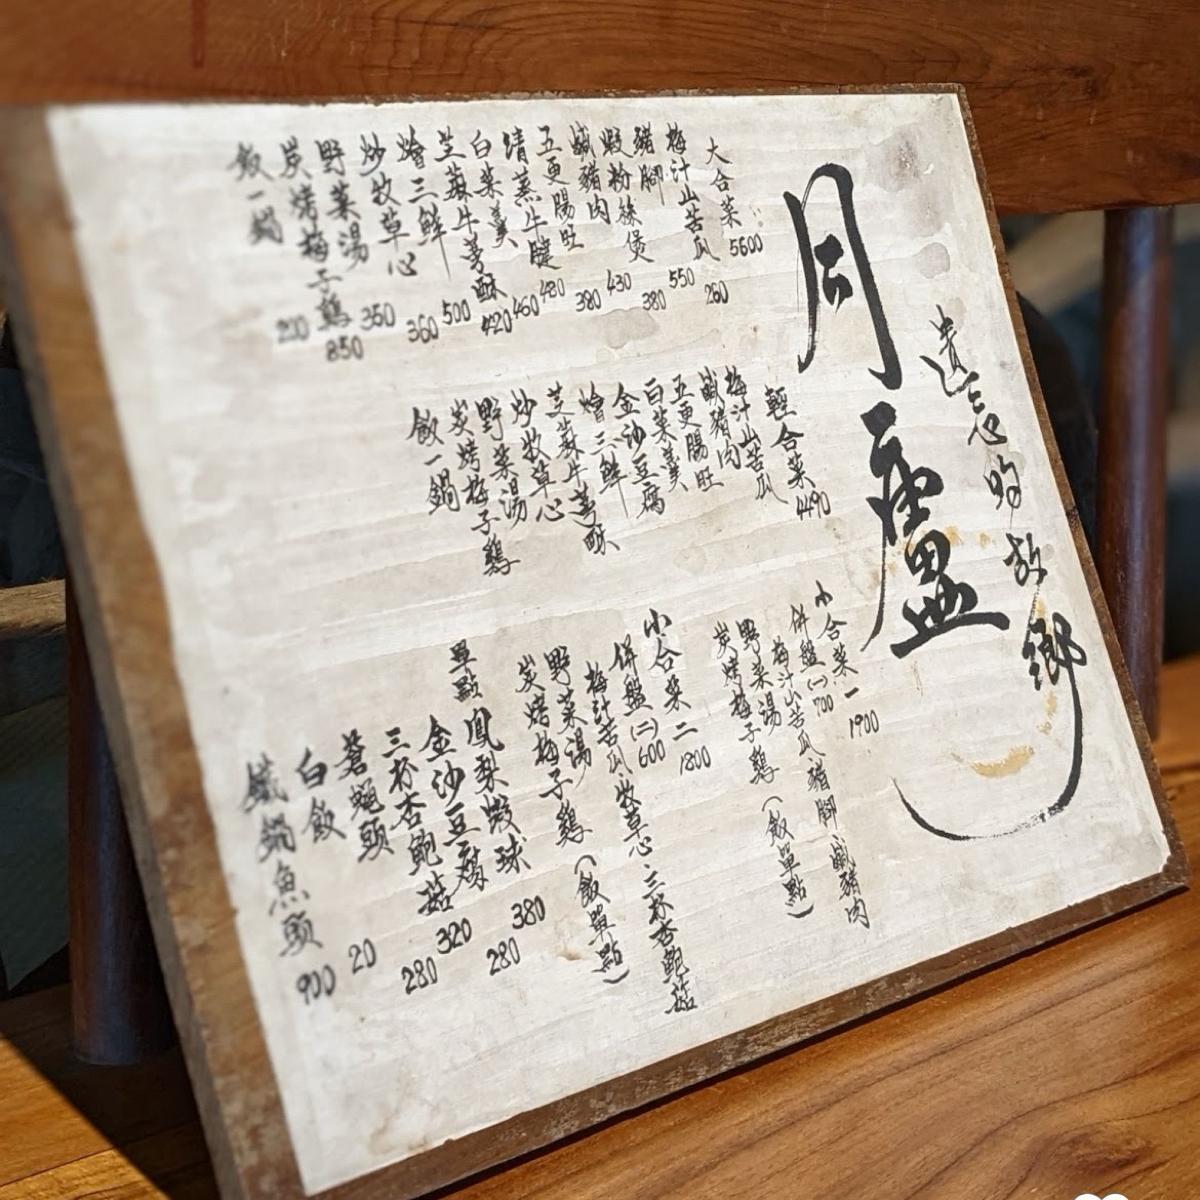 遺忘的故鄉
月廬
大合菜 5600
梅汁山苦瓜 260
豬腳 550
蝦粉絲煲 380
鹹豬肉 430
五更腸旺 380
清蒸牛腱 480
白菜羹 460
芝蔴牛蒡酥 420
燴三鮮 500
炒牧草心 360
野菜湯 350
炭烤梅子鷄 850
飯一鍋 200
輕合菜 4490
梅汁山苦瓜
鹹豬肉
五更腸旺
白菜羹
金沙豆腐
燴三鮮
芝蔴牛蒡酥
炒牧草心
野菜湯
炭烤梅子鷄
飯一鍋
小合菜一 1900
併盤(一) 700
梅汁山苦瓜、豬腳、鹹豬肉
野菜湯
炭烤梅子鷄(飯單點)
小合菜二 1800
併盤(二) 600
梅汁苦瓜、牧草心、三杯杏鮑菇
野菜湯
炭烤梅子鷄(飯單點)
單點
鳳梨蝦球 380
金沙豆腐 280
三杯杏鮑菇 320
蒼蠅頭 280
白飯 20
鐵鍋魚頭 900